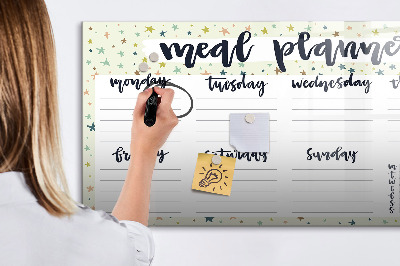 meal planne
monday tuesday wednesday
friday saturday sunday